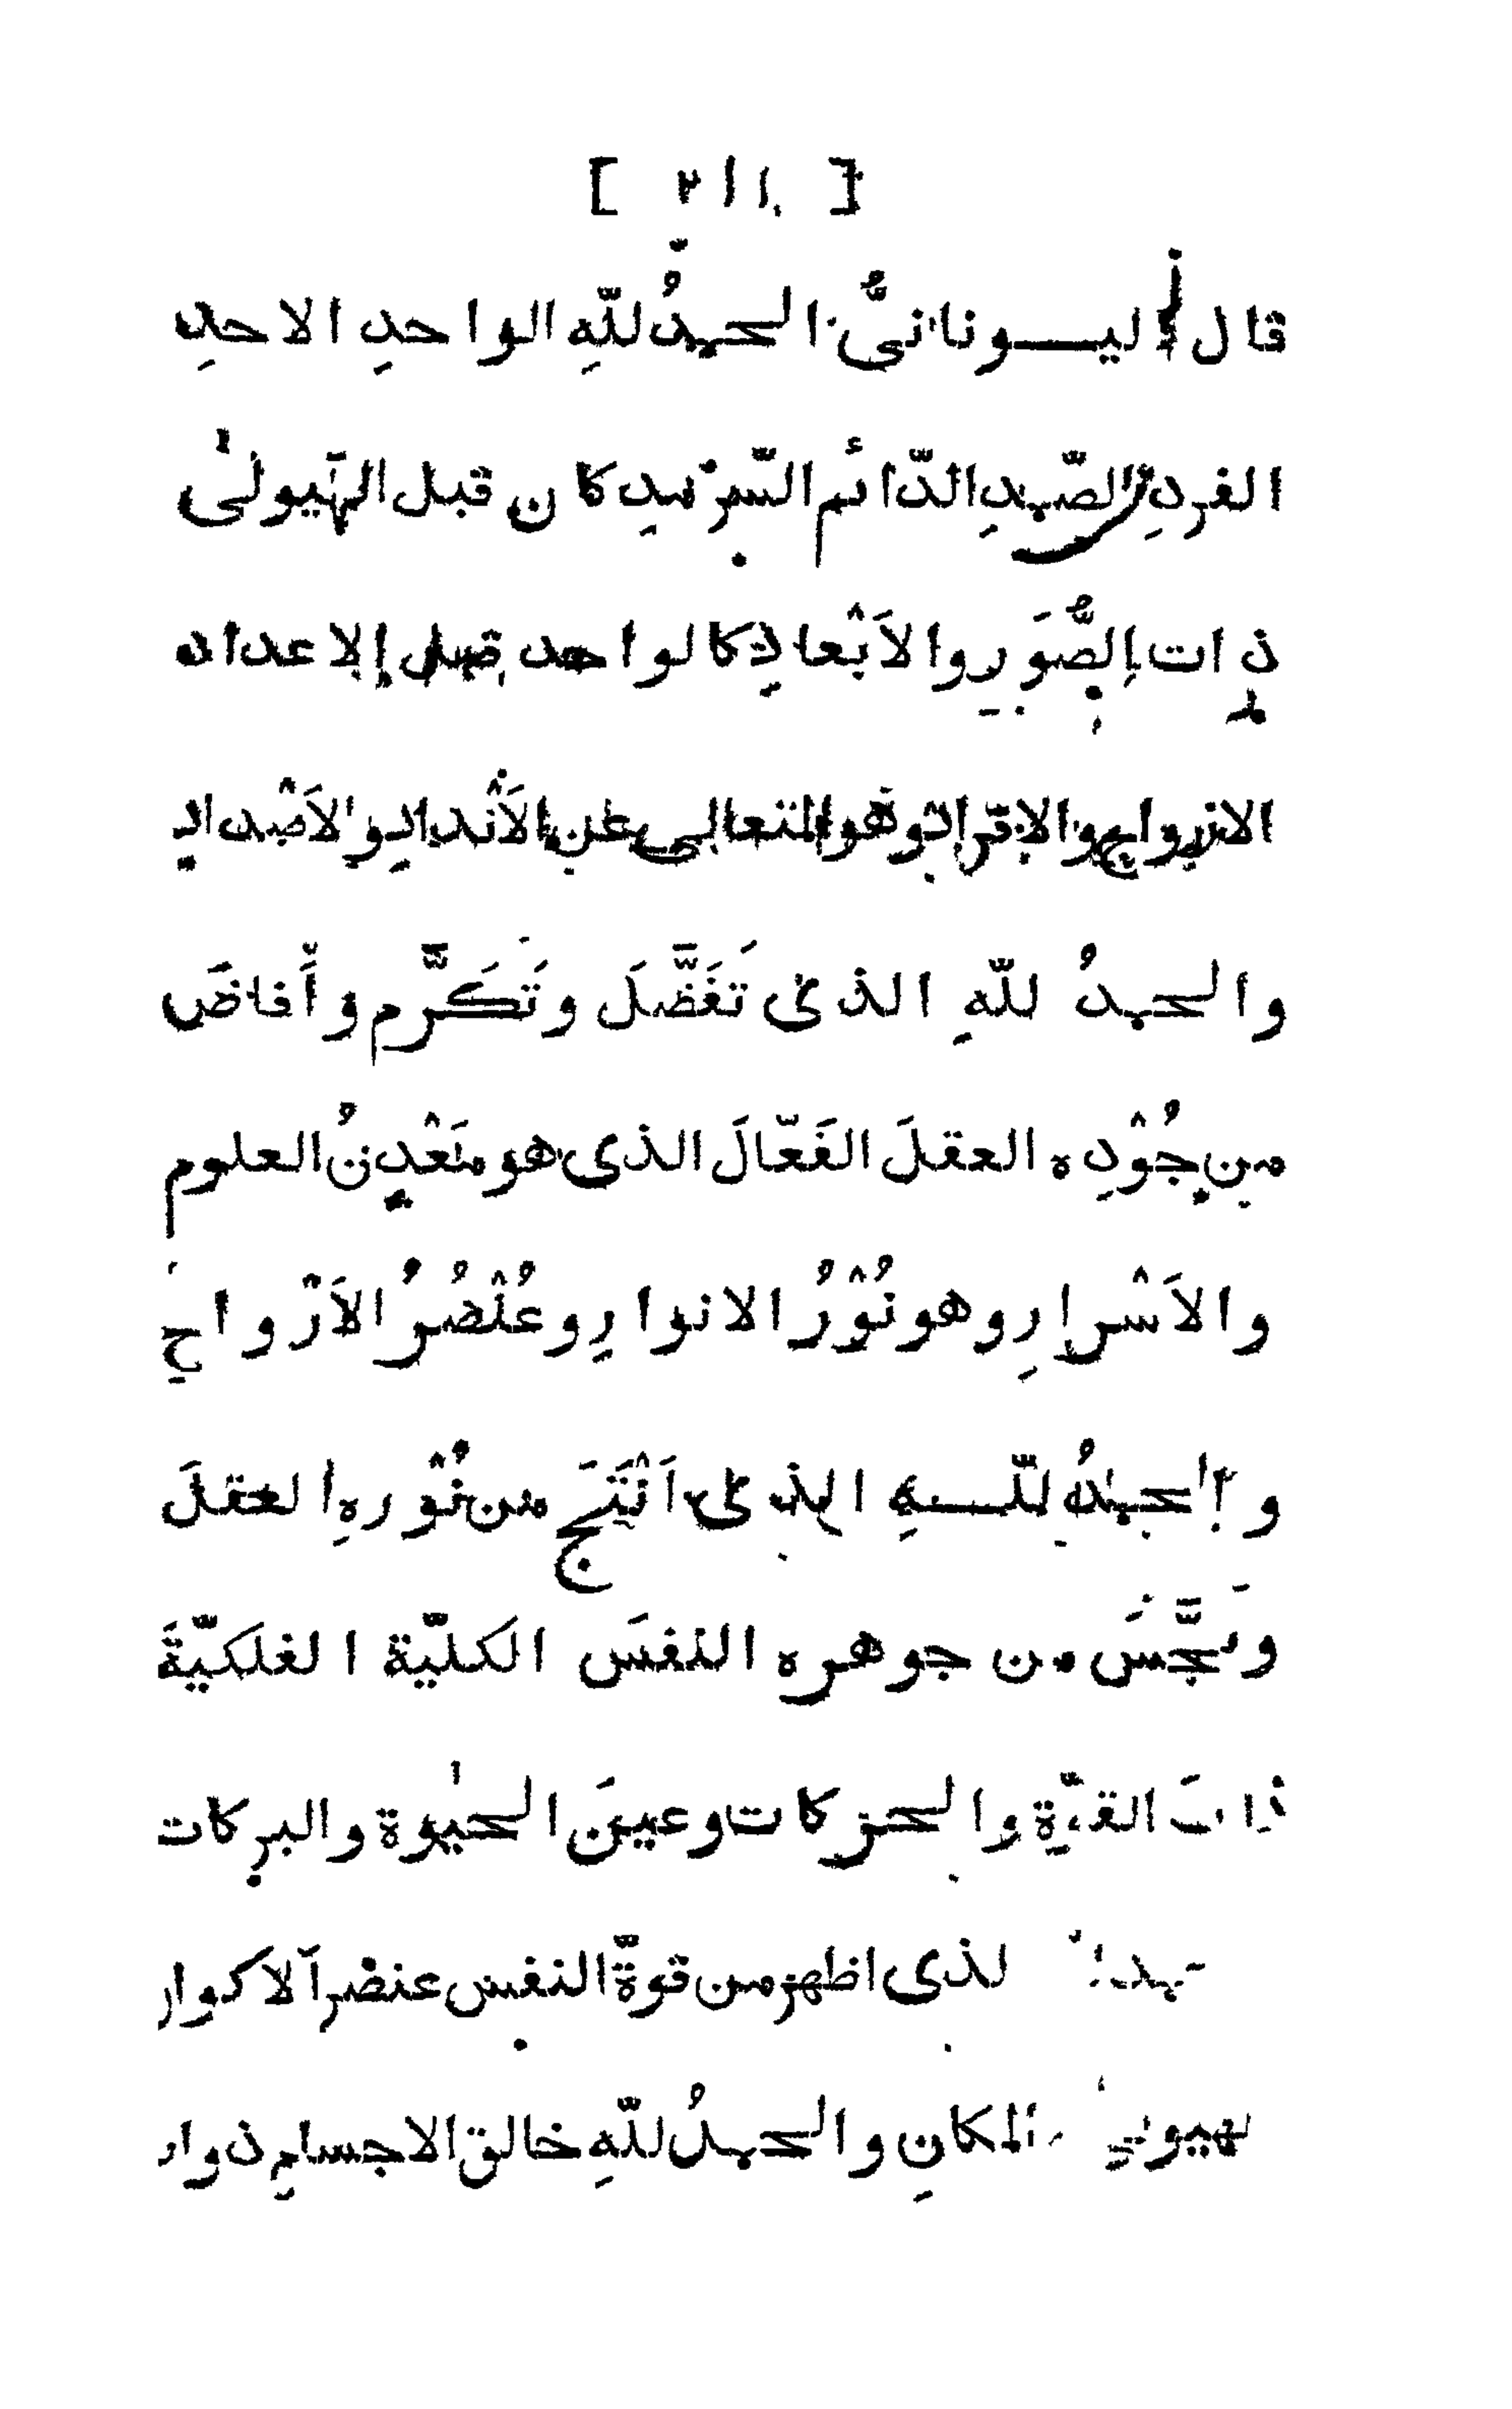 [ ٢١١ ]
قال اليونانىُّ الحمدُ للّهِ الواحدِ الاحدِ
الفردِ الصّمدِ الدّائم السّرْمدِ كان قبل الهَيولىٰ
ذات الصُّوَرِ والاَبْعادِ كالواحد قبل الاعداد
الازواج والافراد وهو المتعالى عن الاَنْداد والاَضْداد
والحمدُ للّهِ الذى تَفَضَّلَ وتَكَرَّم وأَفاضَ
من جُوْدِه العقلَ الفَعّالَ الذى هو مَعْدِنُ العلوم
والاَسْرارِ وهو نُوْرُ الانوارِ وعُنْصُرُ الاَرْواحِ
والحمدُ للّهِ الذى اَنْتَجَ من نُوْرهِ العقلَ
من جوهره النفسَ الكليّة الفلكيّةَ
ذاتَ القوّةِ والحركات وعينَ الحيٰوة والبركات
لذى اظهر من قوّة النفس عنصر الاكوار
المكانِ والحمدُ للّهِ خالق الاجسامِ ذوات